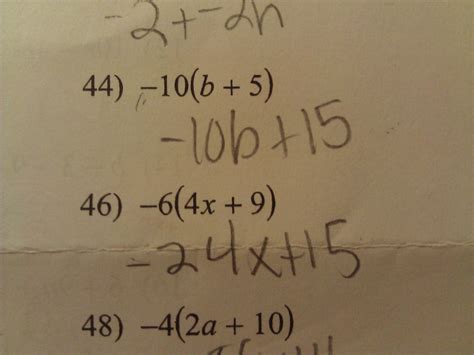 -2+-2n
44) −10(b + 5)
-10b+15
46) −6(4x + 9)
-24x+15
48) −4(2a + 10)